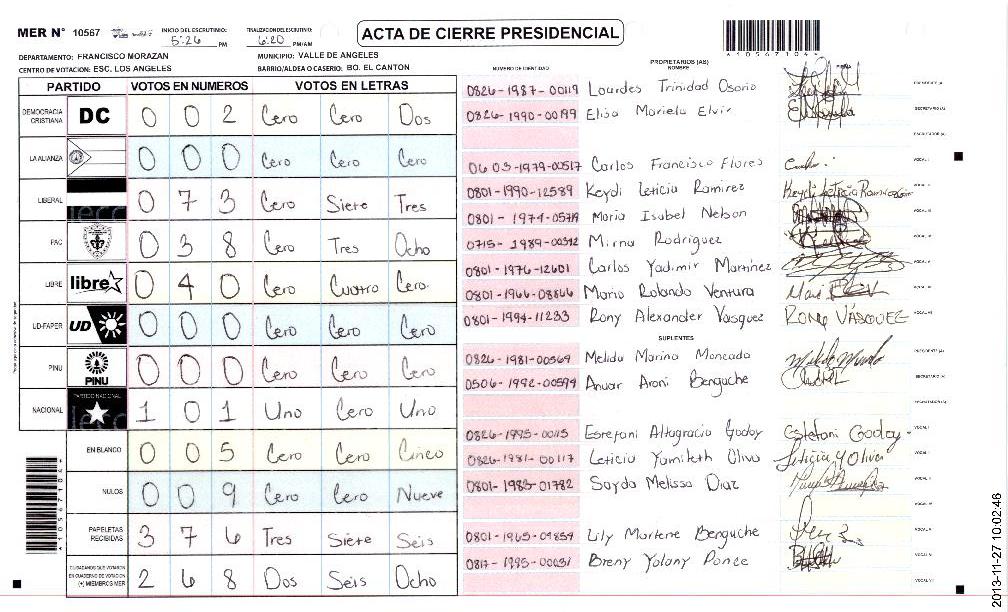 MER N° 10567 INICIO DEL ESCRUTINIO: 5:26 PM FINALIZACION DEL ESCRUTINIO: 6:20 PM/AM ACTA DE CIERRE PRESIDENCIAL
DEPARTAMENTO: FRANCISCO MORAZAN MUNICIPIO: VALLE DE ANGELES
CENTRO DE VOTACION: ESC. LOS ANGELES BARRIO/ALDEA O CASERIO: BO. EL CANTON
PARTIDO VOTOS EN NUMEROS VOTOS EN LETRAS
DEMOCRACIA CRISTIANA DC 0 0 2 Cero Cero Dos
LA ALIANZA 0 0 0 Cero Cero Cero
LIBERAL 0 7 3 Cero Siete Tres
PAC 0 3 8 Cero Tres Ocho
LIBRE libre 0 4 0 Cero Cuatro Cero
UD-FAPER UD 0 0 0 Cero Cero Cero
PINU PINU 0 0 0 Cero Cero Cero
NACIONAL PARTIDO NACIONAL 1 0 1 Uno Cero Uno
EN BLANCO 0 0 5 Cero Cero Cinco
NULOS 0 0 9 Cero Cero Nueve
PAPELETAS RECIBIDAS 3 7 6 Tres Siete Seis
CIUDADANOS QUE VOTARON EN CUADERNO DE VOTACION (+) MIEMBROS MER 2 6 8 Dos Seis Ocho
*10567104*
NUMERO DE IDENTIDAD PROPIETARIOS (AS) NOMBRE
0826-1987-00119 Lourdes Trinidad Osorio PRESIDENTE (A)
0826-1990-00199 Elisa Mariela Elvir SECRETARIO (A)
ESCRUTADOR (A)
0603-1979-00517 Carlos Francisco Flores VOCAL I
0801-1990-12589 Keydi Leticia Ramirez VOCAL II
0801-1974-05719 Maria Isabel Nelson VOCAL III
0715-1989-00312 Mirna Rodriguez VOCAL IV
0801-1976-12601 Carlos Yadimir Martinez VOCAL V
0801-1966-08866 Mario Rolando Ventura VOCAL VI
0801-1994-11233 Rony Alexander Vasquez RONY VASQUEZ VOCAL VII
SUPLENTES
0826-1981-00569 Melida Marina Moncada PRESIDENTE (A)
0506-1992-00599 Anuar Aroni Benguche SECRETARIO (A)
ESCRUTADOR (A)
0826-1995-00115 Estefani Altagracia Godoy Estefani Godoy VOCAL I
0826-1981-00117 Leticia Yamileth Oliva Leticia Y Oliva VOCAL II
0801-1983-01782 Sayda Melissa Diaz VOCAL III
VOCAL IV
0801-1965-09859 Lily Marlene Benguche VOCAL V
0817-1995-00031 Breny Yolany Ponce VOCAL VI
VOCAL VII
*10567104*
2013-11-27 10:02:46